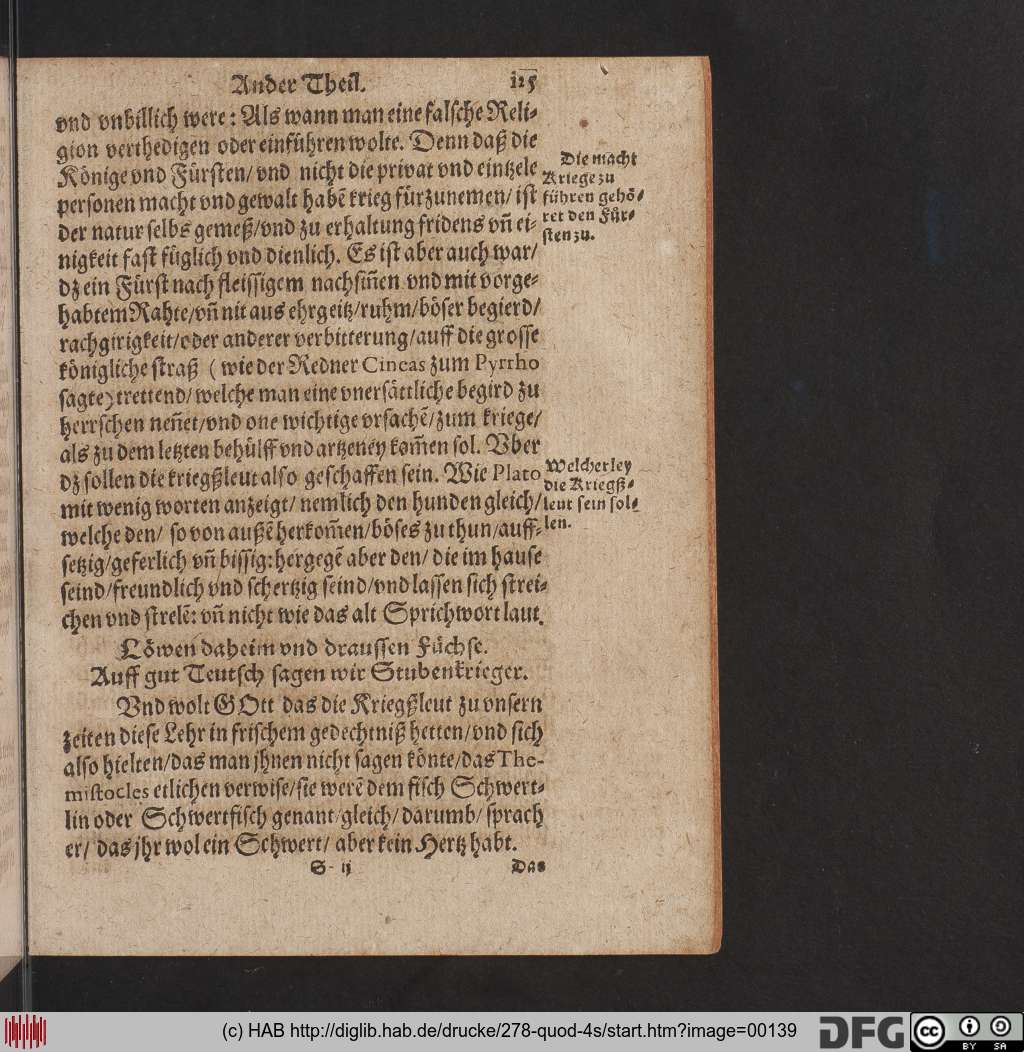 Ander Theil. 125
vnd vnbillich were: Als wann man eine falsche Reli-
gion verthedigen oder einführen wolte. Denn daß die
Könige vnd Fürsten/ vnd nicht die privat vnd eintzele
personen macht vnd gewalt habẽ krieg fürzunemen/ ist
der natur selbs gemeß/ vnd zu erhaltung fridens vñ ei-
nigkeit fast füglich vnd dienlich. Es ist aber auch war/
dz ein Fürst nach fleissigem nachsiñen vnd mit vorge-
habtem Rahte/ vñ nit aus ehrgeitz/ ruhm/ böser begierd/
rachgirigkeit/ oder anderer verbitterung/ auff die grosse
königliche straß (wie der Redner Cineas zum Pyrrho
sagte) trettend/ welche man eine vnersättliche begird zu
herrschen neñet/ vnd one wichtige vrsachẽ/ zum kriege/
als zu dem letzten behülff vnd artzeney kom̃en sol. Vber
dz sollen die kriegßleut also geschaffen sein. Wie Plato
mit wenig worten anzeigt/ nemlich den hunden gleich/
welche den/ so von außẽ herkom̃en/ böses zu thun/ auff-
setzig/ geferlich vñ bissig: hergegẽ aber den/ die im hause
seind/ freundlich vnd schertzig seind/ vnd lassen sich strei-
chen vnd strelẽ: vñ nicht wie das alt Sprichwort laut.
Löwen daheim vnd draussen Füchse.
Auff gut Teutsch sagen wir Stubenkrieger.
Vnd wolt GOtt das die Kriegßleut zu vnsern
zeiten diese Lehr in frischem gedechtniß hetten/ vnd sich
also hielten/ das man jhnen nicht sagen könte/ das The-
mistocles etlichen verwise/ sie werẽ dem fisch Schwert-
lin oder Schwertfisch genant/ gleich/ darumb/ sprach
er/ das jhr wol ein Schwert/ aber kein Hertz habt.
S ij Das
Die macht
Kriege zu
führen gehö-
ret den Für-
sten zu.
Welcherley
die Kriegß-
leut sein sol-
len.
(c) HAB http://diglib.hab.de/drucke/278-quod-4s/start.htm?image=00139
DFG
cc BY SA